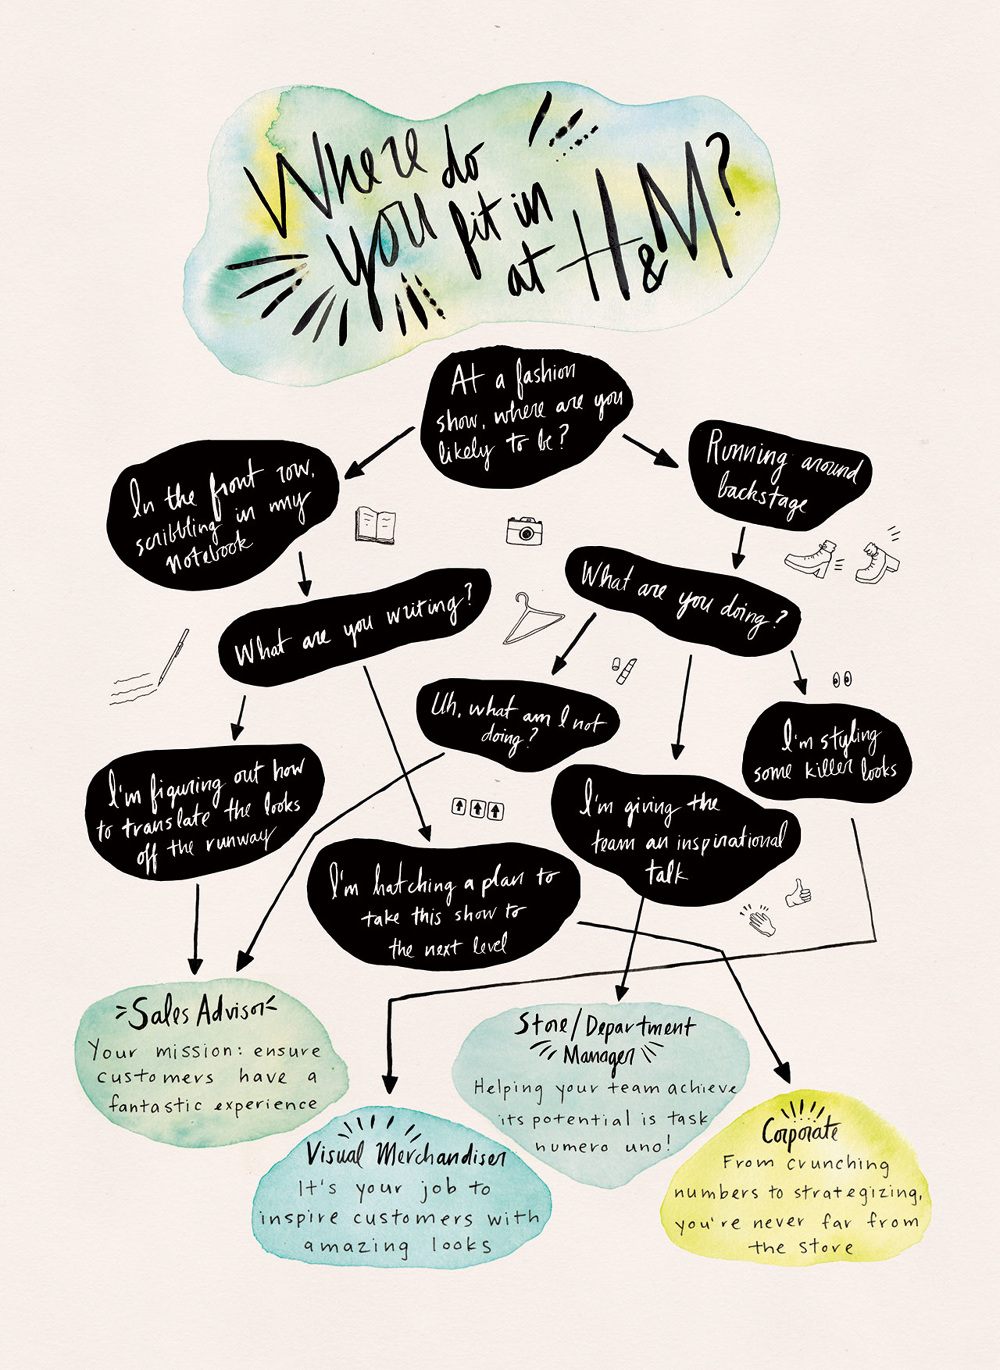 Where do
you fit in
at H&M?
At a fashion
show, where are you
likely to be?
In the front row,
scribbling in my
notebook
Running around
backstage
What are you writing?
What are you doing?
Uh, what am I not
doing?
I'm styling
some killer looks
I'm figuring out how
to translate the looks
off the runway
I'm giving the
team an inspirational
talk
I'm hatching a plan to
take this show to
the next level
Sales Advisor
Your mission: ensure
customers have a
fantastic experience
Store/Department
Manager
Helping your team achieve
its potential is task
numero uno!
Visual Merchandiser
It's your job to
inspire customers with
amazing looks
Corporate
From crunching
numbers to strategizing,
you're never far from
the store